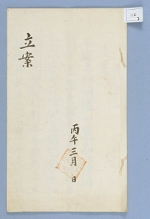 立案
丙午三月 日